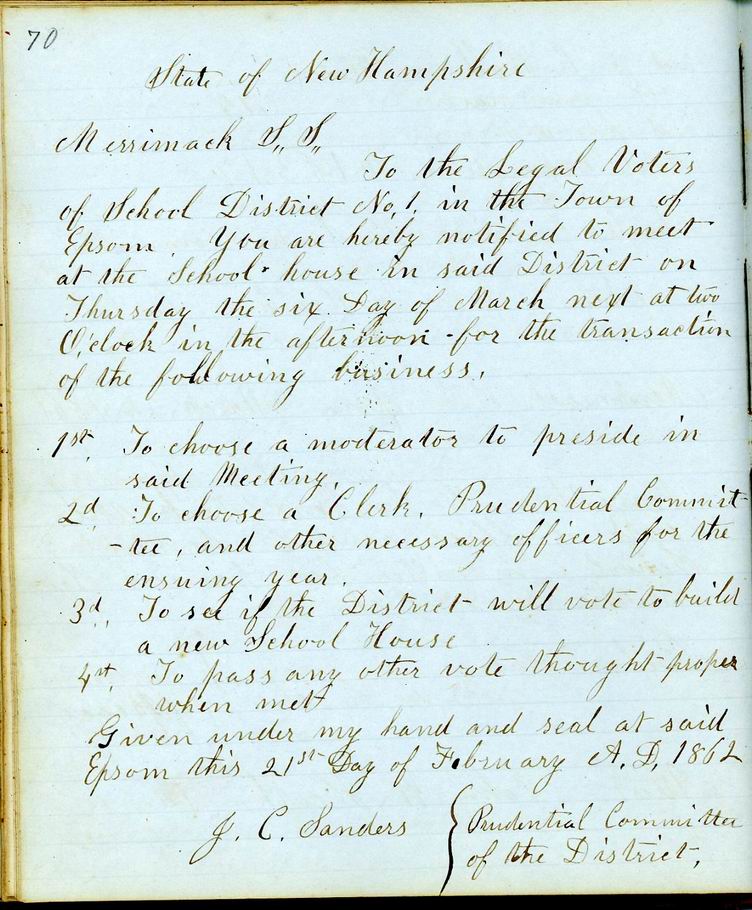 70
State of New Hampshire
Merrimack S,, S,,
To the Legal Voters
of School District No, 1, in the Town of
Epsom. You are hereby notified to meet
at the School house in said District on
Thursday the six Day of March next at two
O,clock in the afternoon for the transaction
of the following business,
1st, To choose a moderator to preside in
said Meeting,
2d, To choose a Clerk, Prudential Commit-
-tee, and other necessary officers for the
ensuing year.
3d, To see if the District will vote to build
a new School House
4st, To pass any other vote thought proper
when met
Given under my hand and seal at said
Epsom this 21st Day of February A. D, 1862
J. C. Sanders { Prudential Committee
of the District,